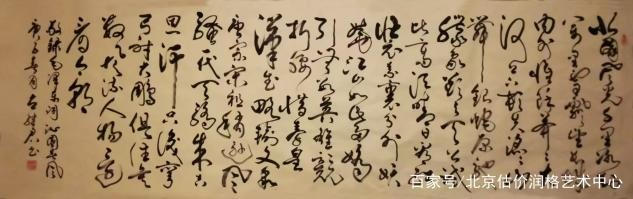 北国风光千里冰
封万里雪飘望长
城内外惟余莽莽大
河上下顿失滔滔山
舞银蛇原驰
蜡象欲与天公试
比高须晴日看红
装素裹分外妖
娆江山如此多娇
引无数英雄竞
折腰惜秦皇
汉武略输文采
唐宗宋祖稍逊风
骚一代天骄成吉
思汗只识弯
弓射大雕俱往矣
数风流人物还
看今朝
敬录毛泽东词沁园春雪
庚子春月
百家号/北京估价润格艺术中心